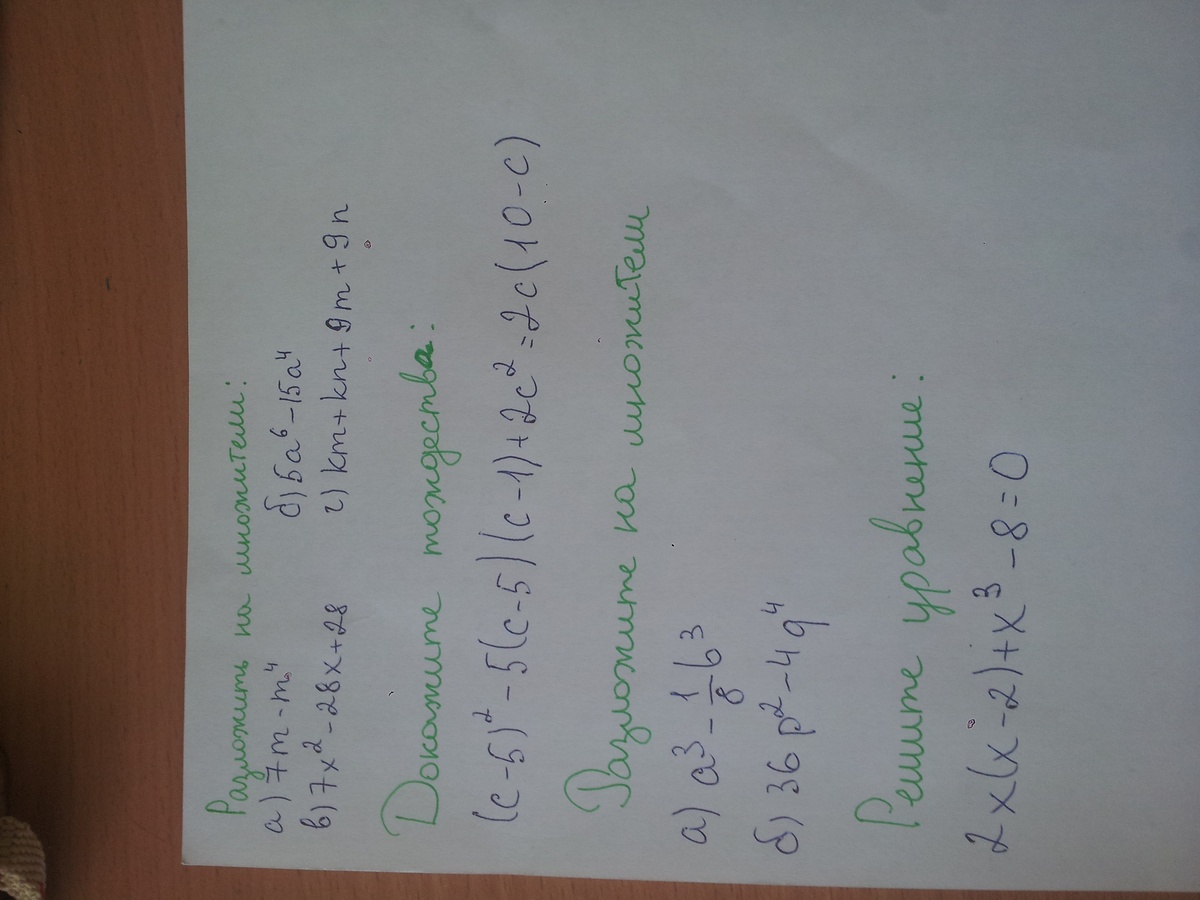 Разложить на множители:
а) 7m - m⁴ б) 5a⁶ - 15a⁴
в) 7x² - 28x + 28 г) km + kn + 9m + 9n
Докажите тождества:
(c - 5)² - 5(c - 5)(c - 1) + 2c² = 2c(10 - c)
Разложите на множители
а) a³ - 1/8 b³
б) 36p² - 4q⁴
Решите уравнение:
2x(x - 2) + x³ - 8 = 0